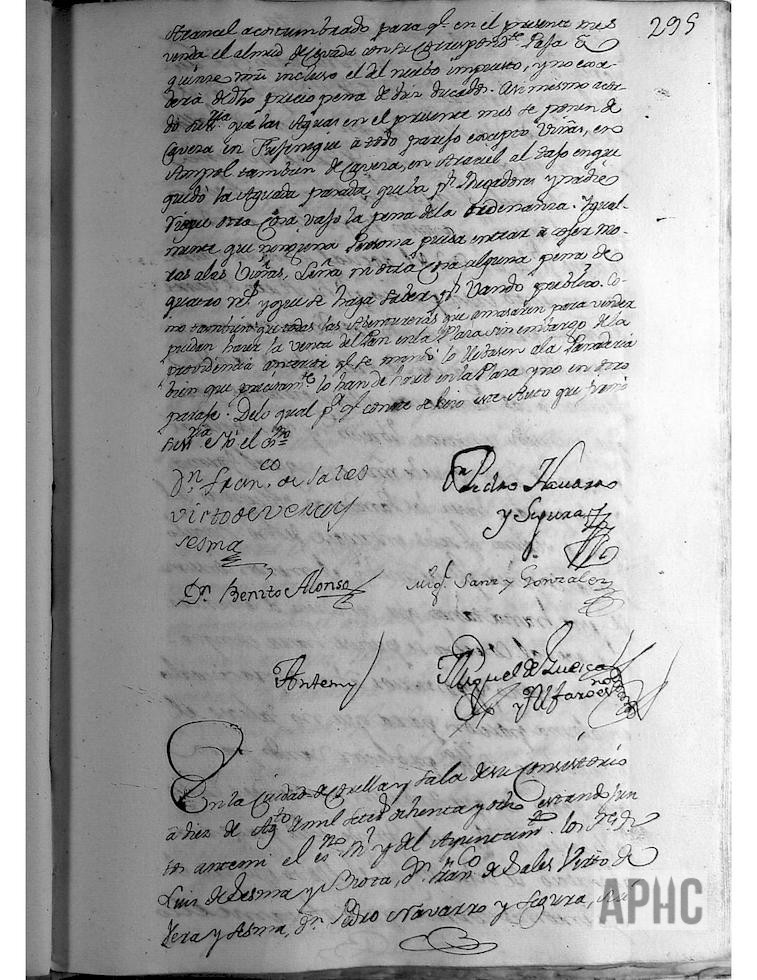 295
Arancel acostumbrado para qe. en el presente mes
venda el almud de Cevada con su Correspondte. tasa
quinze mrs. incluso el del nuebo impuesto, y no exce
dera de dho precio pena de diez ducados. Asi mismo acor
do que las Aguas en el presente mes se ponen de
Cavera en a todo parajo excepto Viñas, en
tambien de Cavera, en Araciel al tajo en que
quedó la Aguada parada, que la Regadores y nadie
otra Cosa vajo la pena dela Ordenanza. Igual-
mente que ninguna Persona pueda entrar a coger mo
ras alas Viñas, Leña ni otra Cosa alguna pena de
quatro rs. y que se haga Saber pr. Vando publico. Co-
mo tambien que todas las que amasaren para vender
puedan hacer la venta del Pan en la Plaza sin embargo de la
providencia anterior qe. se mandó lo llebasen ala Panaderia
bien que precisamte. lo han de hacer en la Plaza y no en otro
paraje. Delo qual pa. qe. conste se hizo este Auto que firmó
e Yo el Sno.
Dn. Franco. de Sales
Virto de Vera y
Sesma
Dn. Pedro Navarro
y Segura
Dn. Benito Alonso
Migl. Sanz y Gonzalez
Antemy
Miguel de
y Alfaro esno.
En la Ciudad de Corella y Sala de su Consistorio
a diez de Agto. de mil setezs. ochenta y ocho estando jun
tos antemi el esno. Rl. y del Ayuntamto. los Sres. Dn.
Luis de Sesma y Dn. Franco. de Sales Virto de
Vera y Sesma, Dn. Pedro Navarro y Segura,
APHC